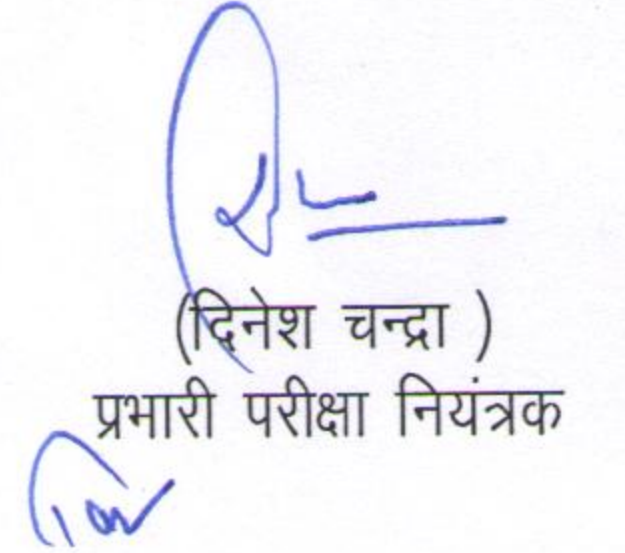 (दिनेश चन्द्रा )
प्रभारी परीक्षा नियंत्रक